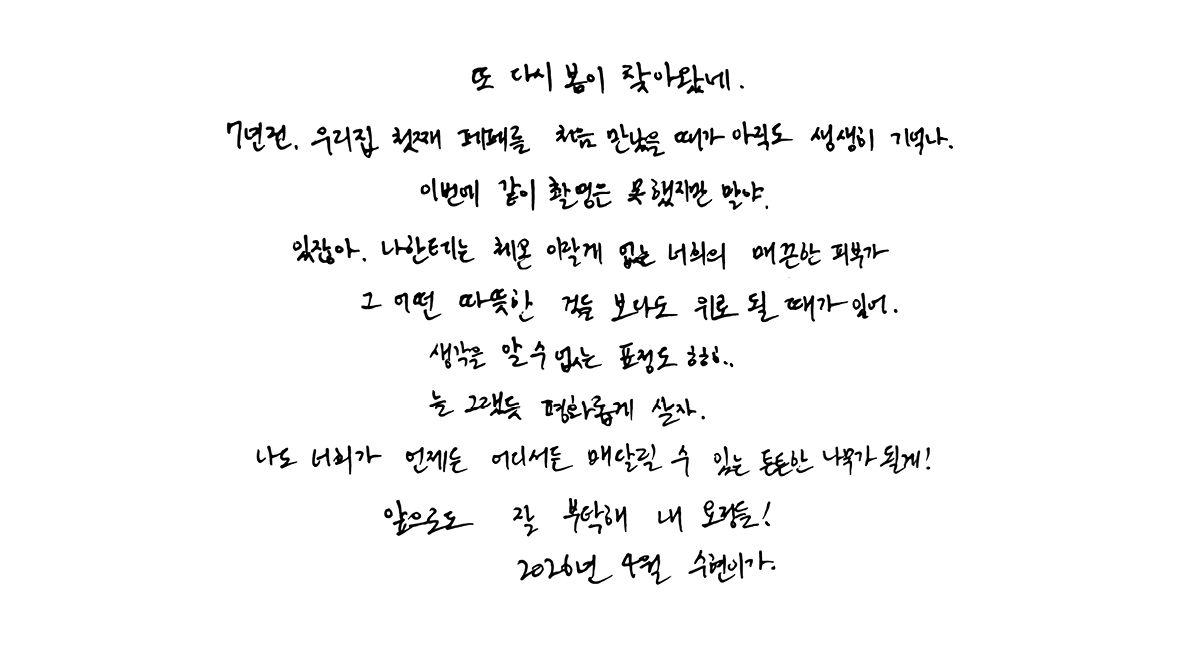 또 다시 봄이 찾아왔네.
7년전, 우리집 첫째 페페를 처음 만났을 때가 아직도 생생히 기억나.
이번에 같이 촬영은 못했지만 말야.
있잖아, 나한테는 체온 이랄게 없는 너희의 매끈한 피부가
그 어떤 따뜻한 것들 보다도 위로 될 때가 있어.
생각을 알 수 없는 표정도 하하..
늘 그랬듯 평화롭게 살자.
나도 너희가 언제든 어디서든 매달릴 수 있는 튼튼한 나무가 될게!
앞으로도 잘 부탁해 내 요정들!
2026년 4월 수현이가.